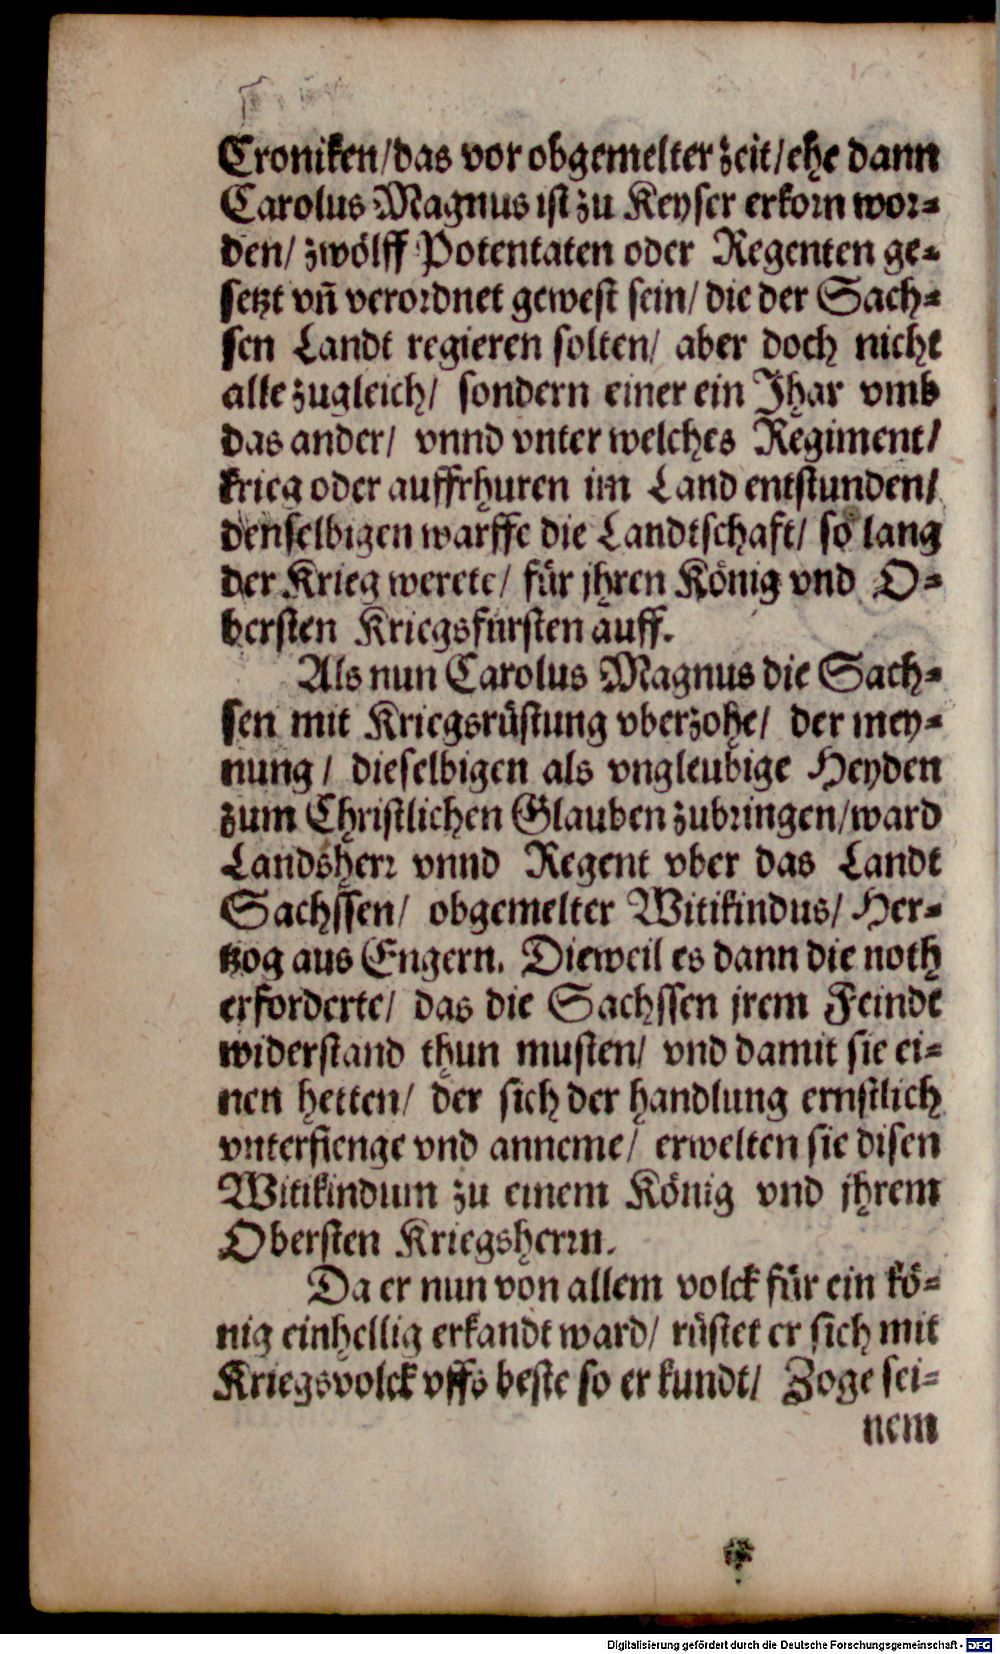 Croniken/das vor obgemelter zeit/ehe dann
Carolus Magnus ist zu Keyser erkorn wor-
den/ zwölff Potentaten oder Regenten ge-
setzt vñ verordnet gewest sein/ die der Sach-
sen Landt regieren solten/ aber doch nicht
alle zugleich/ sondern einer ein Jhar vmb
das ander/ vnnd vnter welches Regiment/
krieg oder auffrhuren im Land entstunden/
denselbigen warffe die Landtschaft/ so lang
der Krieg werete/ für jhren König vnd O-
bersten Kriegsfürsten auff.
Als nun Carolus Magnus die Sach-
sen mit Kriegsrüstung vberzohe/ der mey-
nung/ dieselbigen als vngleubige Heyden
zum Christlichen Glauben zubringen/ward
Landsherr vnnd Regent vber das Landt
Sachssen/ obgemelter Witikindus/ Her-
tzog aus Engern. Dieweil es dann die noth
erforderte/ das die Sachssen jrem Feindt
widerstand thun musten/ vnd damit sie ei-
nen hetten/ der sich der handlung ernstlich
vnterfienge vnd anneme/ erwelten sie disen
Witikindum zu einem König vnd jhrem
Obersten Kriegsherrn.
Da er nun von allem volck für ein kö-
nig einhellig erkandt ward/ rüstet er sich mit
Kriegsvolck vffs beste so er kundt/ Zoge sei-
nem
Digitalisierung gefördert durch die Deutsche Forschungsgemeinschaft - DFG